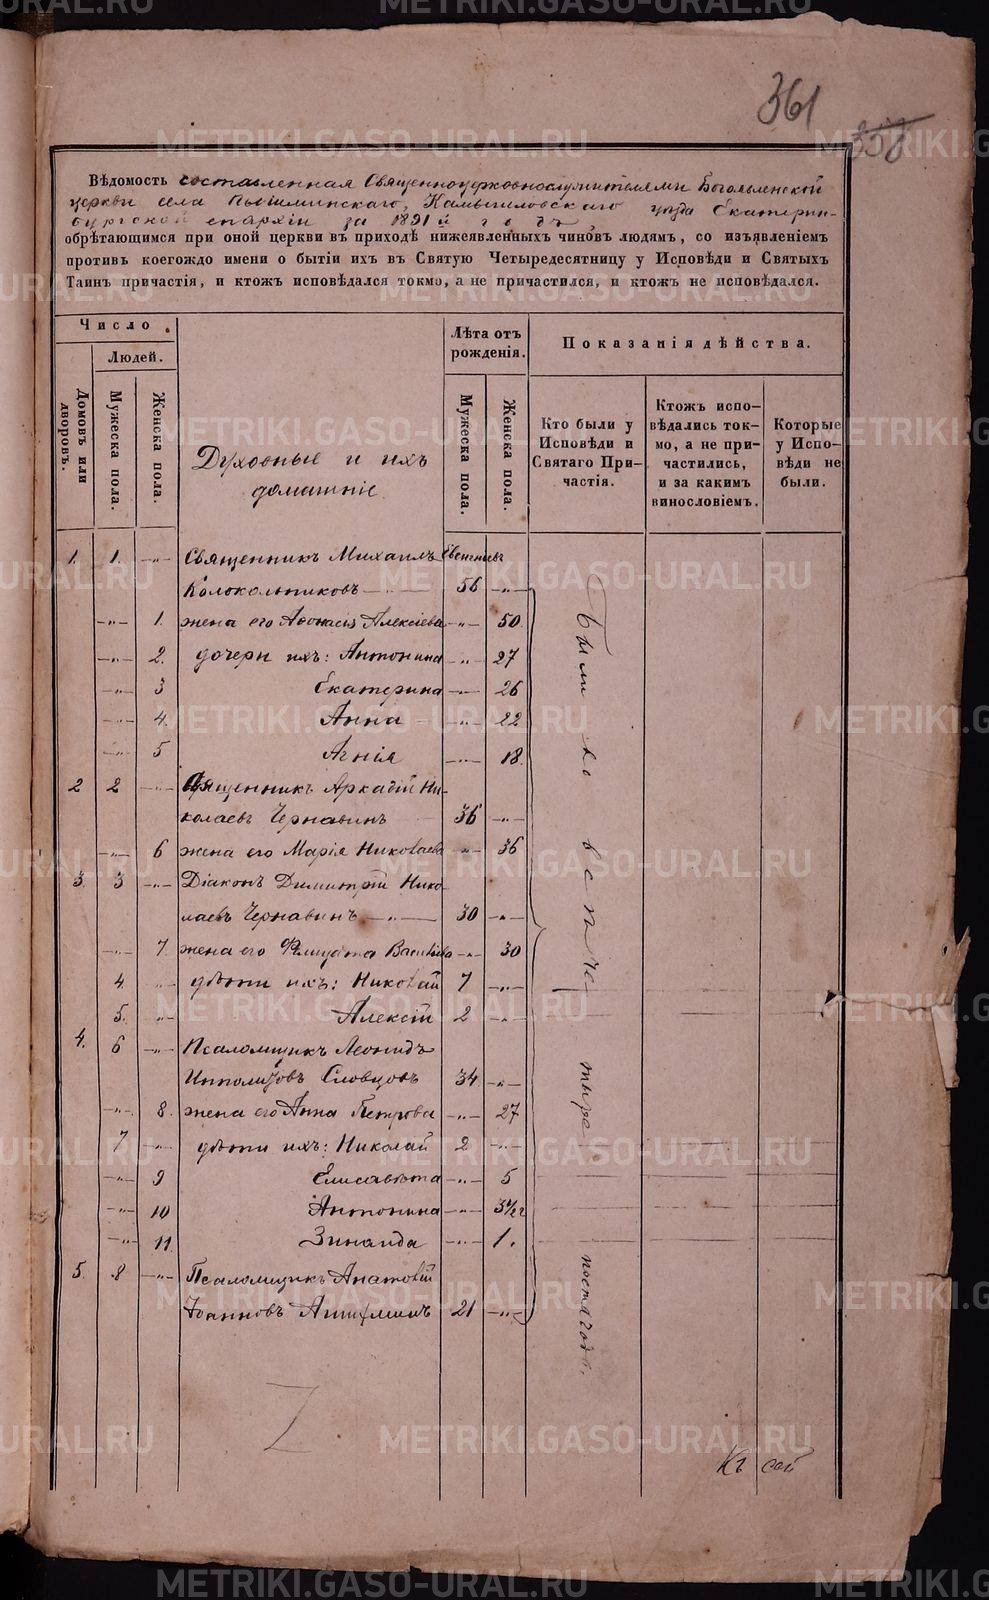 361
358
Вѣдомость составленная Священноцерковнослужителями Богоявленской
церкви села Пышминскаго, Камышловскаго уѣзда Екатерин-
бургской епархіи за 1891й годъ
обрѣтающимся при оной церкви въ приходѣ нижеявленныхъ чиновъ людямъ, со изъявленіемъ
противъ коегождо имени о бытіи ихъ въ Святую Четыредесятницу у Исповѣди и Святыхъ
Таинъ причастія, и ктожъ исповѣдался токмо, а не причастился, и ктожъ не исповѣдался.
Число
Людей.
Домовъ или дворовъ.
Мужеска пола.
Женска пола.
Духовные и ихъ
домашніе
Лѣта отъ рожденія.
Мужеска пола.
Женска пола.
Показанія дѣйства.
Кто были у Исповѣди и Святаго Причастія.
Ктожъ исповѣдались токмо, а не причастились, и за какимъ винословіемъ.
Которые у Исповѣди не были.
1. 1. -"- Священникъ Михаилъ Евгеніевъ
Колокольниковъ 56 -"-
-"- 1. жена его Аѳонасія Алексіева -"- 50
-"- 2. дочери ихъ: Антонина -"- 27
-"- 3 Екатерина -"- 26
-"- 4. Анна -"- 22
-"- 5 Агнія -"- 18.
2 2 -"- Священникъ Аркадій Ни-
колаевъ Чернавинъ 36 -"-
-"- 6 жена его Марія Николаева -"- 36
3. 3 -"- Діаконъ Димитрій Нико-
лаевъ Чернавинъ -"- 30 -"-
-"- 7. жена его Фелицата Васильева -"- 30
4. -"- дѣти ихъ: Николай 7 -"-
5. -"- Алексій 2 -"-
4. 6 -"- Псаломщикъ Леонидъ
Ипполитовъ Словцовъ 34 -"-
-"- 8. жена его Анна Петрова -"- 27
7 -"- дѣти ихъ: Николай 2 -"-
-"- 9 Елисавѣта -"- 5
-"- 10 Антонина -"- 3 1/2
-"- 11. Зинаида -"- 1.
5. 8 -"- Псаломщикъ Анатолій
Іоанновъ 21 -"-
Были во
тыре
поста года.
Къ сей
METRIKI.GASO-URAL.RU